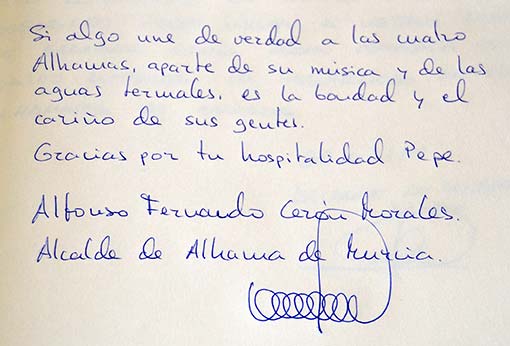 Si algo une de verdad a las cuatro
Alhamas, aparte de su música y de las
aguas termales, es la bondad y el
cariño de sus gentes.
Gracias por tu hospitalidad Pepe.
Alfonso Fernando Cerón Morales.
Alcalde de Alhama de Murcia.